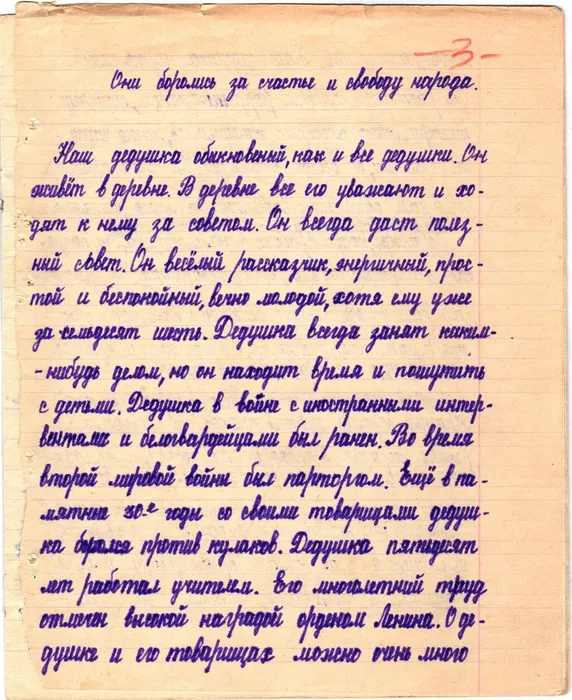 -3-
Они боролись за счастье и свободу народа.
Наш дедушка обикновеный, как и все дедушки. Он
живёт в деревне. В деревне все его уважают и хо-
дят к нему за советом. Он всегда даст полез-
ний совет. Он весёлый рассказчик, энергичный, прос-
той и беспокойный, вечно молодой, хотя ему уже
за семьдесят шесть. Дедушка всегда занят каким-
-нибудь делом, но он находит время и пошутить
с детьми. Дедушка в войне с иностранными интер-
вентами и белогвардейцами был ранен. Во время
второй мировой войны был парторгом. Ещё в па-
мятные 30-е годы со своими товарищами дедуш-
ка боролся против кулаков. Дедушка пятьдесят
лет работал учителем. Его многолетний труд
отмечен высокой наградой орденом Ленина. О де-
душке и его товарищах можно очень много